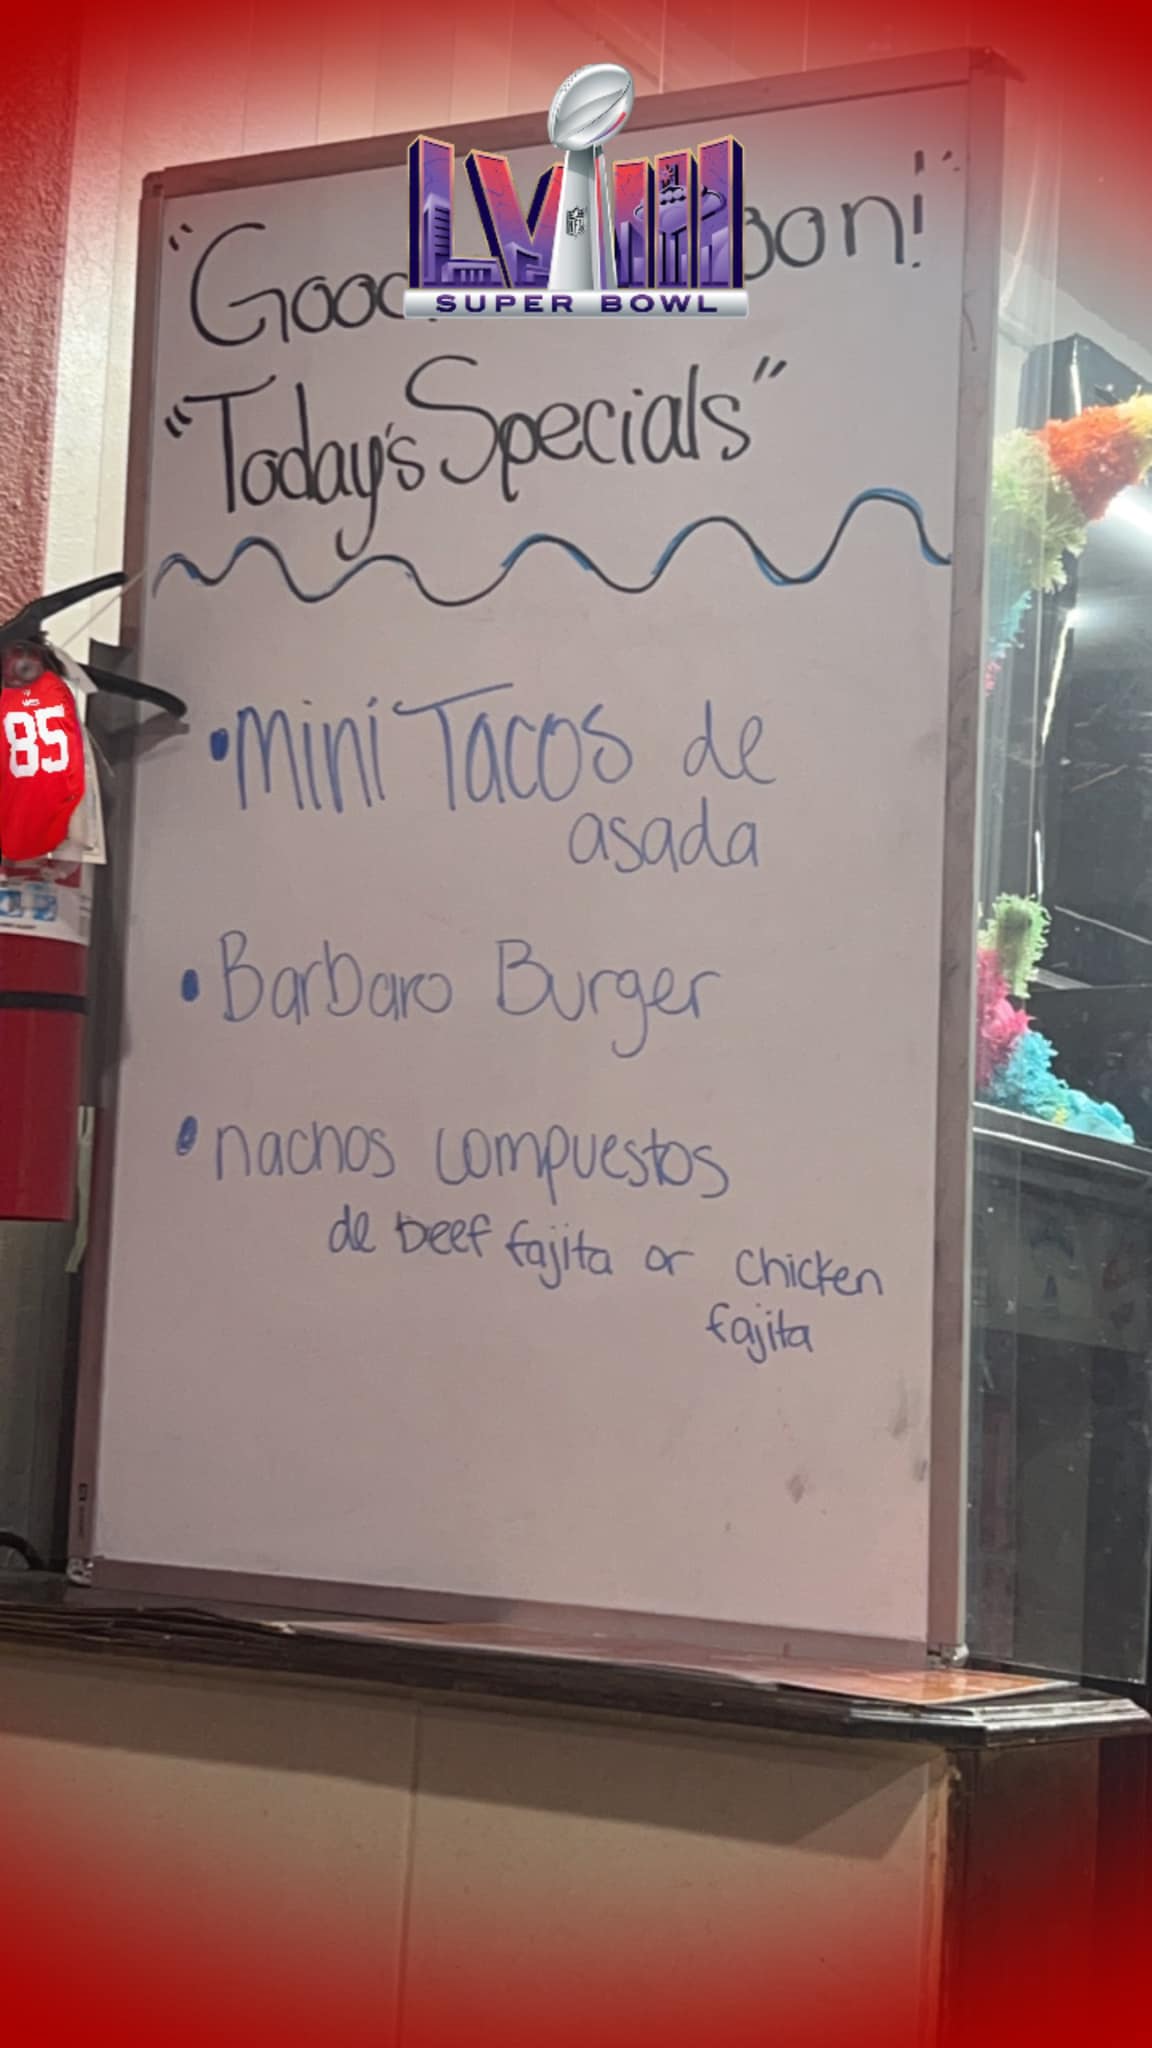 LVIII
SUPER BOWL
"Good oon!"
"Today's Specials"
•mini Tacos de
asada
• Barbaro Burger
• nachos compuestos
de beef fajita or chicken
fajita
85